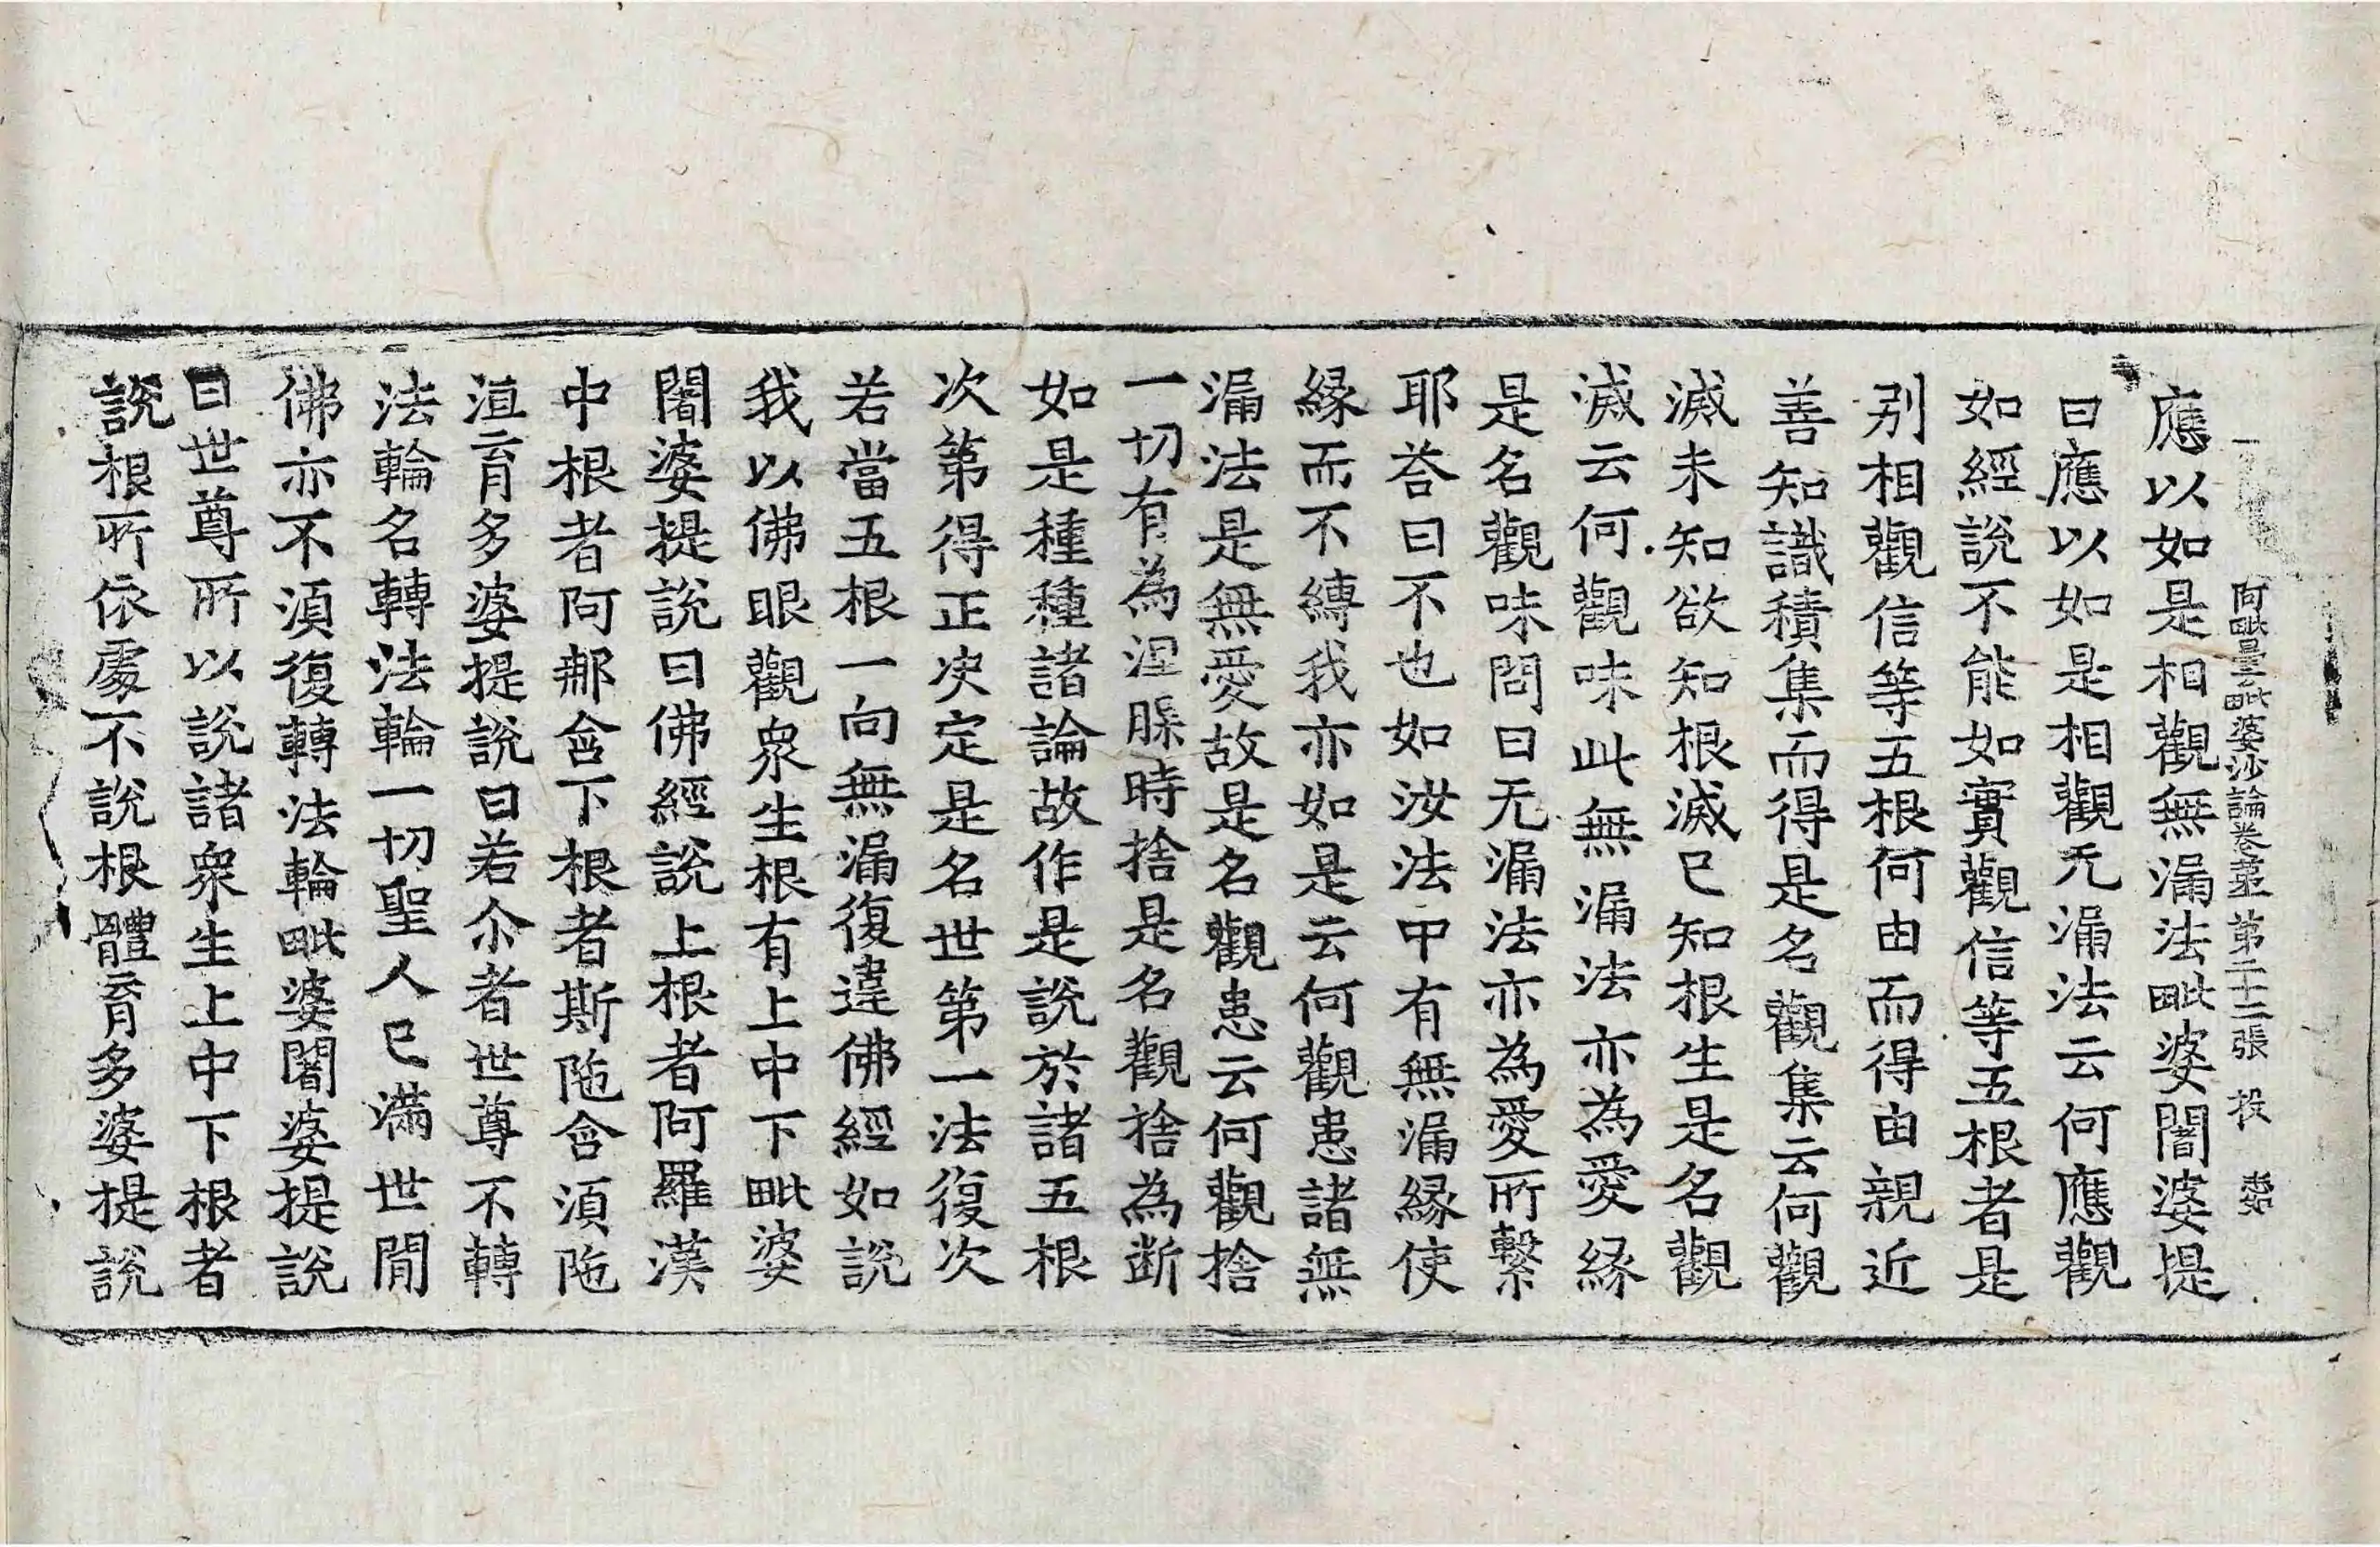 阿毗曇毗婆沙論卷第一 第二十二張 投
應以如是相觀無漏法毗婆闍婆提
曰應以如是相觀无漏法云何應觀
如經說不能如實觀信等五根者是
別相觀信等五根何由而得由親近
善知識積集而得是名觀集云何觀
滅未知欲知根滅已知根生是名觀
滅云何觀味此無漏法亦為愛緣
是名觀味問曰无漏法亦為愛所繫
耶荅曰不也如汝法中有無漏緣使
緣而不縛我亦如是云何觀患諸無
漏法是無愛故是名觀患云何觀捨
一切有為涅槃時捨是名觀捨為斷
如是種種諸論故作是說於諸五根
次第得正決定是名世第一法復次
若當五根一向無漏復違佛經如說
我以佛眼觀衆生根有上中下毗婆
闍婆提說曰佛經說上根者阿羅漢
中根者阿那含下根者斯陁含須陁
洹育多婆提說曰若尒者世尊不轉
法輪名轉法輪一切聖人已滿世間
佛亦不須復轉法輪毗婆闍婆提說
曰世尊所以說諸衆生上中下根者
說根所依處不說根體育多婆提說